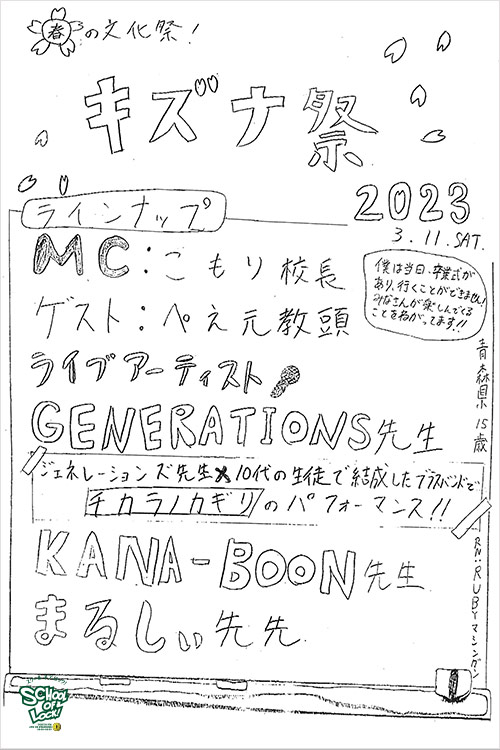 春の文化祭!
キズナ祭
2023
3.11.SAT.
ラインナップ
MC:こもり校長
僕は当日、卒業式が
あり、行くことができません!
みなさんが楽しんでくる
ことをねがってます!!
青森県 15歳
RN:RUBYマシンガン
ゲスト:ぺえ元教頭
ライブアーティスト
GENERATIONS先生
ジェネレーションズ先生×10代の生徒で結成したブラスバンドで
チカラノカギリのパフォーマンス!!
KANA-BOON先生
まるしぃ先先
SCHOOL
OF
LOCK!